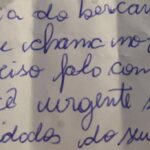 a do bercar
e chama no
ciso falo com
cê urgente s
idados do seu